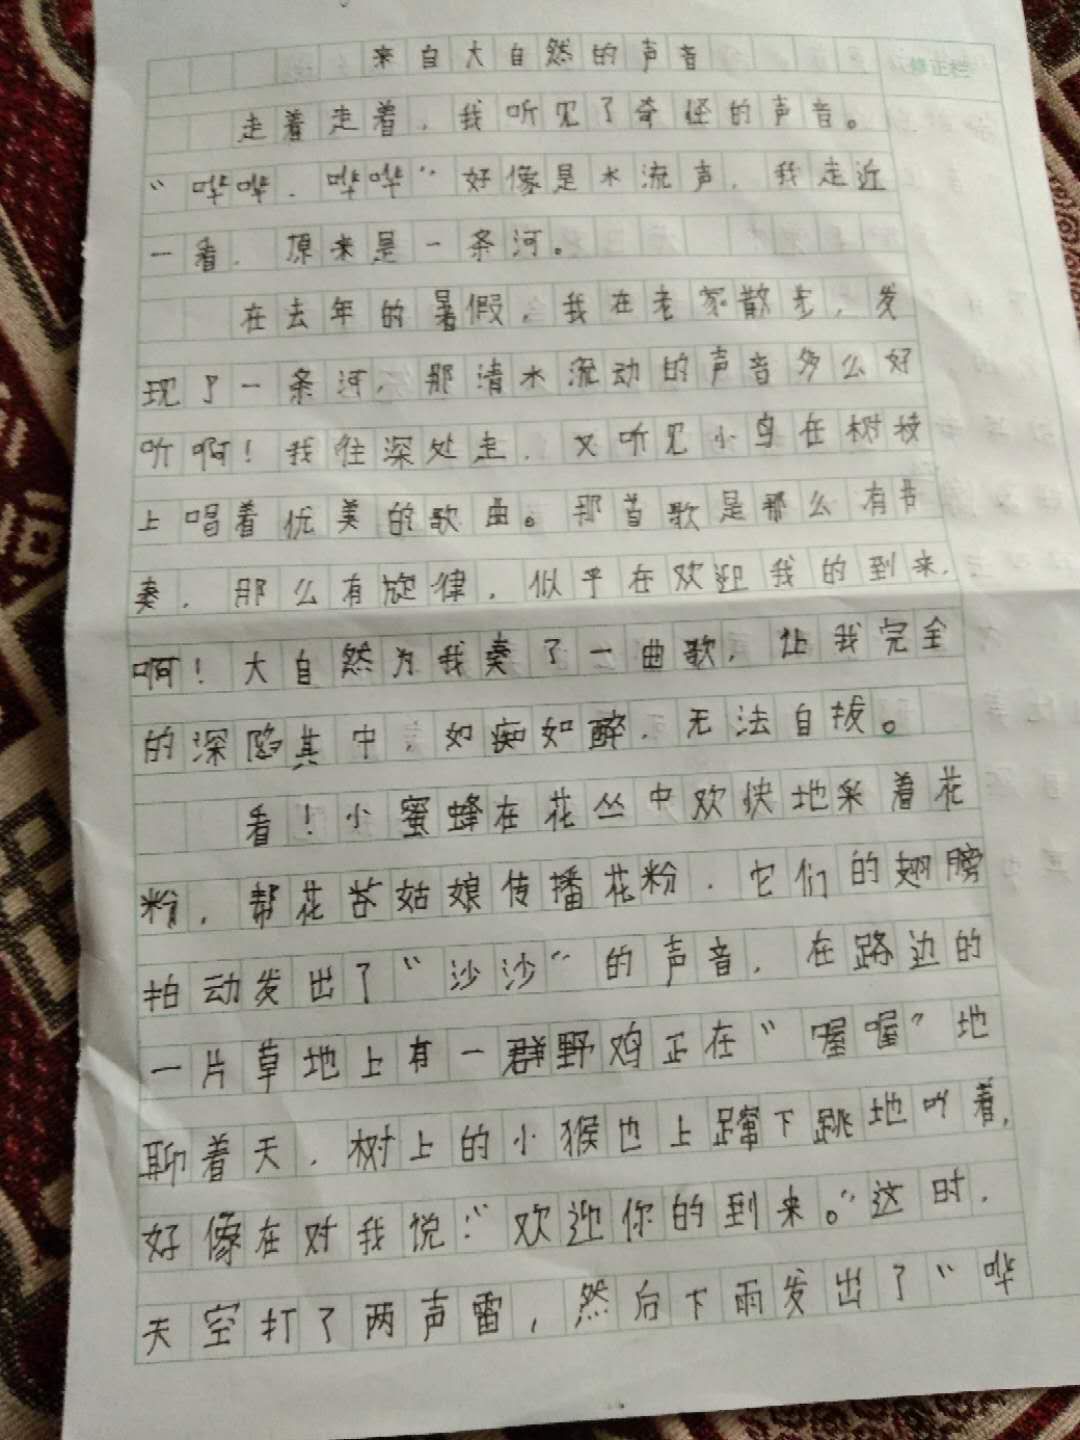 来自大自然的声音
走着走着，我听见了奇怪的声音。
“哗哗，哗哗”好像是水流声，我走近
一看，原来是一条河。
在去年的暑假，我在老家散步，发
现了一条河，那清水流动的声音多么好
听啊！我往深处走，又听见小鸟在树枝
上唱着优美的歌曲。那首歌是那么有节
奏，那么有旋律，似乎在欢迎我的到来，
啊！大自然为我奏了一曲歌，让我完全
的深陷其中，如痴如醉，无法自拔。
看！小蜜蜂在花丛中欢快地采着花
粉，帮花苔姑娘传播花粉，它们的翅膀
拍动发出了“沙沙”的声音，在路边的
一片草地上有一群野鸡正在“喔喔”地
聊着天，树上的小猴也上蹿下跳地叫着，
好像在对我说：“欢迎你的到来。”这时，
天空打了两声雷，然后下雨发出了“哗